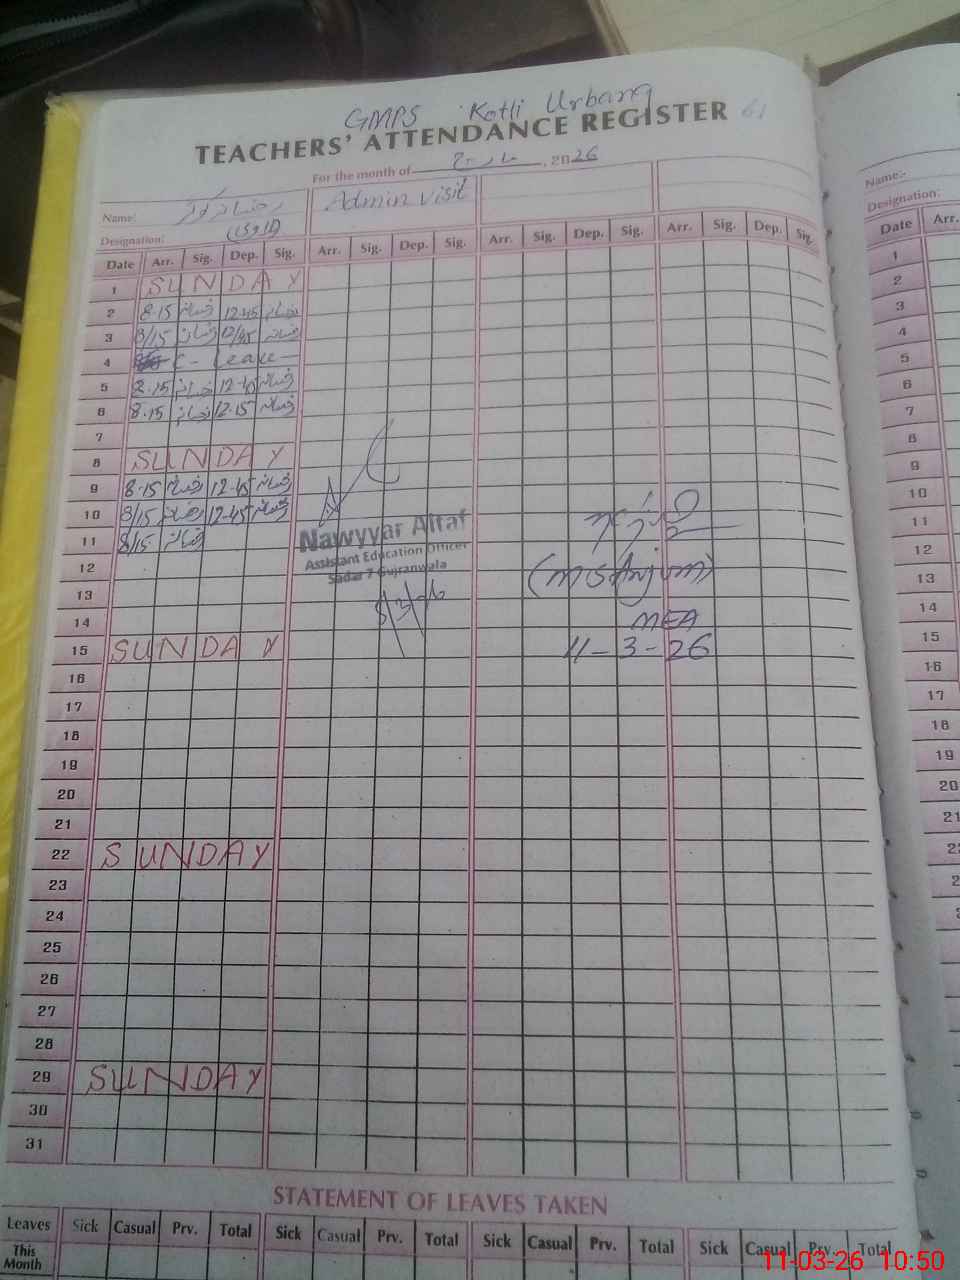 GMPS Kotli Urbang 61
TEACHERS' ATTENDANCE REGISTER
For the month of مارچ, 2026
Name: Admin visit
Designation:
Date Arr. Sig. Dep. Sig. Arr. Sig. Dep. Sig. Arr. Sig. Dep. Sig. Arr. Sig. Dep. Sig.
1 SUNDAY
2 8.15 12.45
3 8/15 12/45
4 C-Leave
5 8.15 12.45
6 8.15 12.15
7
8 SUNDAY
9 8.15 12.45
10 8/15 12.45
11 8/15
12
13
14
15 SUNDAY
16
17
18
19
20
21
22 SUNDAY
23
24
25
26
27
28
29 SUNDAY
30
31
Nawyyar Altaf
Assistant Education Officer
Sadar 7 Gujranwala
5/3/26
(MS Anjum)
MEA
11-3-26
STATEMENT OF LEAVES TAKEN
Leaves Sick Casual Prv. Total Sick Casual Prv. Total Sick Casual Prv. Total Sick Casual Prv. Total
This Month
Name:-
Designation:
Date Arr.
1
2
3
4
5
6
7
8
9
10
11
12
13
14
15
16
17
18
19
20
21
11-03-26 10:50